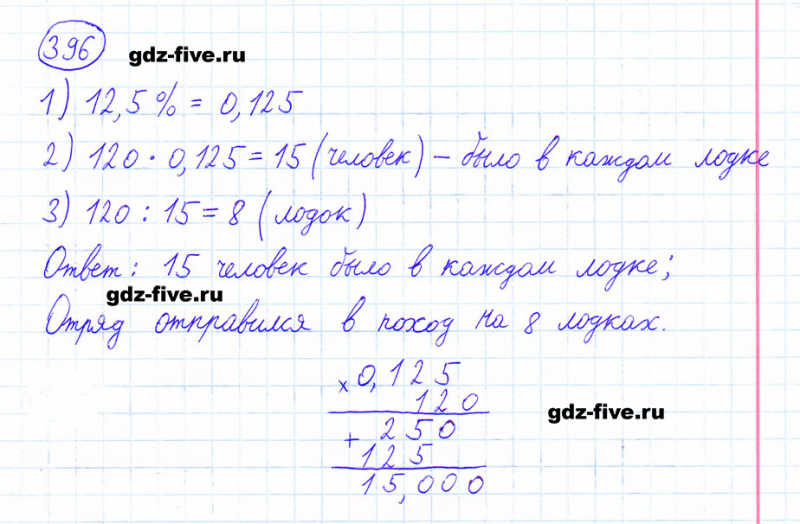 396 gdz-five.ru
1) 12,5% = 0,125
2) 120 · 0,125 = 15 (человек) – было в каждом лодке
3) 120 : 15 = 8 (лодок)
Ответ: 15 человек было в каждом лодке;
gdz-five.ru
Отряд отправился в поход на 8 лодках.
x 0,125
120
gdz-five.ru
+ 250
125
15,000